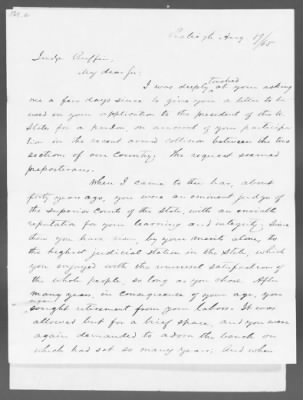 Raleigh Aug. 17/65
Judge Ruffin,
My dear sir,
I was deeply touched at your asking
me a few days since to give you a letter to be
used in your application to the president of the U.
States for a pardon, on account of your participa-
tion in the recent armed collision between the two
sections of our Country. The request seemed
preposterous.
When I came to the bar, about
forty years ago, you were an eminent judge of
the Superior Courts of the State, with an enviable
reputation for your learning and integrity. Since
then you have risen, by your merits alone, to
the highest judicial station in the State, which
you enjoyed with the universal satisfaction of
the whole people so long as you chose. After
many years, in consequence of your age, you
sought retirement from your labors. It was
allowed but for a brief space, and you were
again demanded to adorn the bench on
which had sat so many years; and when